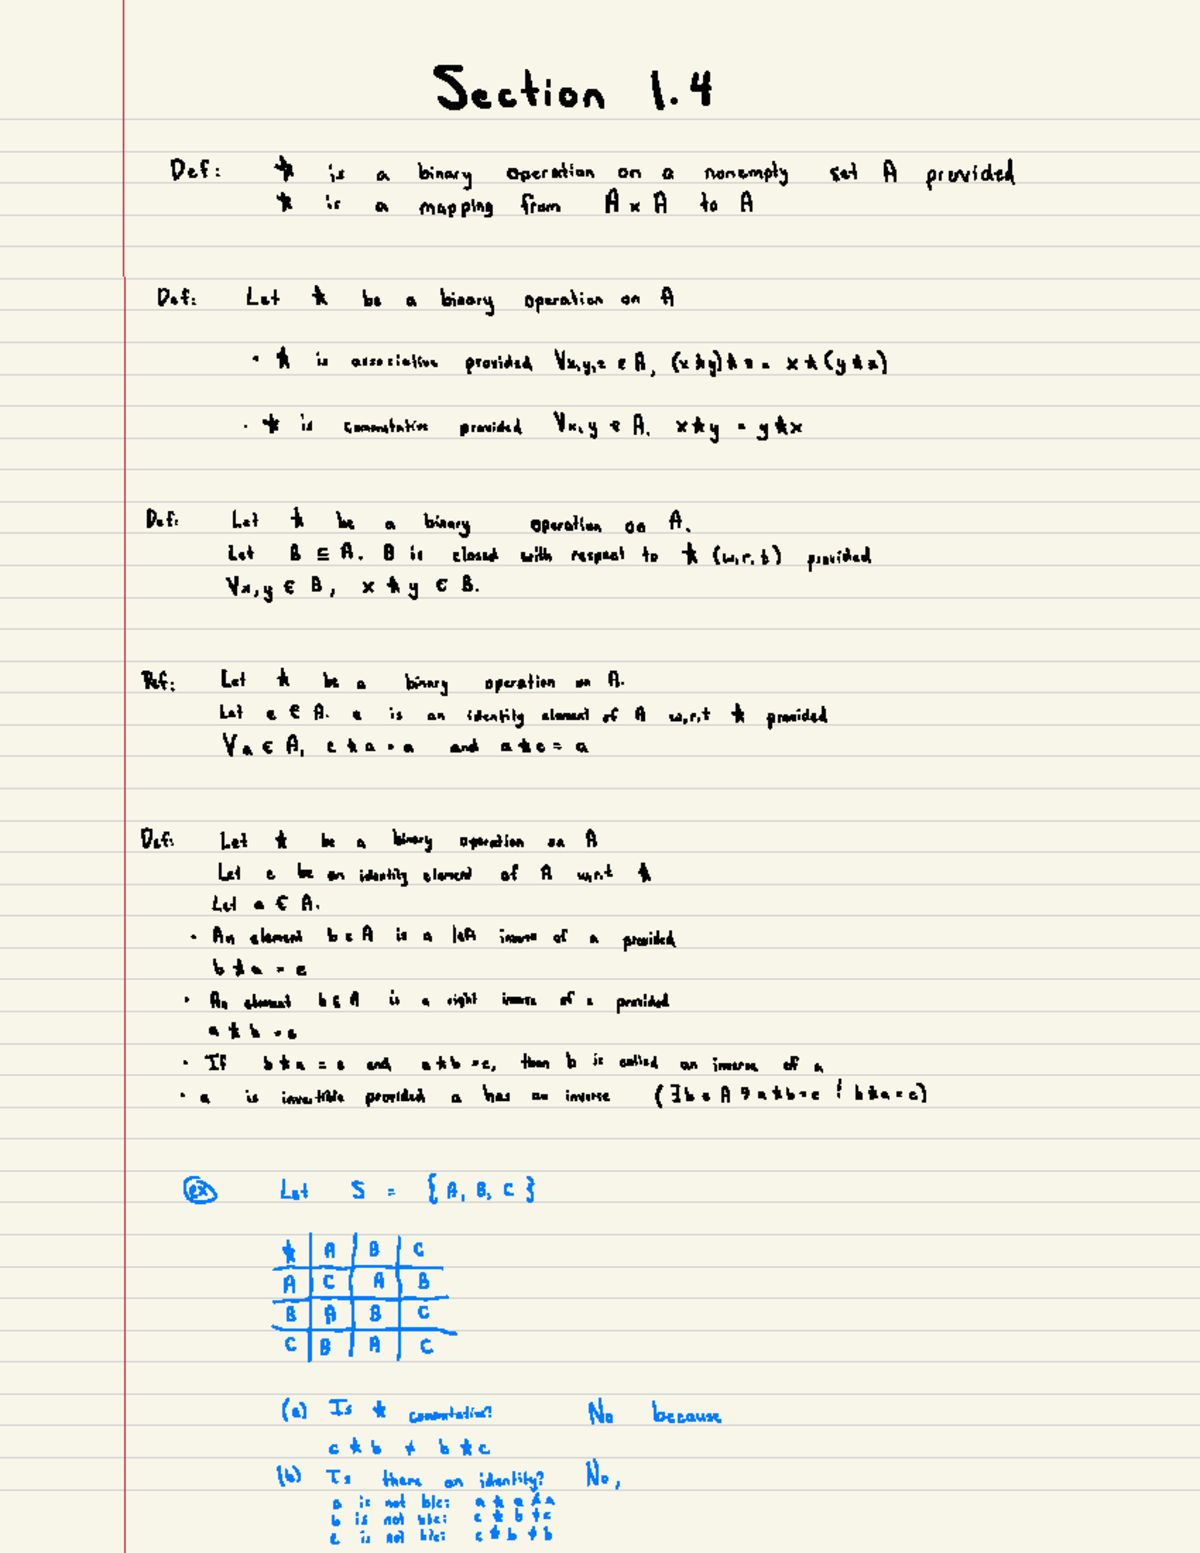 Section 1.4
Def: ★ is a binary operation on a nonempty set A provided
★ is a mapping from A × A to A
Def: Let ★ be a binary operation on A
• ★ is associative provided ∀x,y,z ∈ A, (x★y)★z = x★(y★z)
• ★ is commutative provided ∀x,y ∈ A, x★y = y★x
Def: Let ★ be a binary operation on A.
Let B ⊆ A. B is closed with respect to ★ (w,r,t) provided
∀x,y ∈ B, x ★ y ∈ B.
Def: Let ★ be a binary operation on A.
Let e ∈ A. e is an identity element of A w,r,t ★ provided
∀a ∈ A, e★a = a and a★e = a
Def: Let ★ be a binary operation on A
Let e be an identity element of A w,r,t ★
Let a ∈ A.
• An element b ∈ A is a left inverse of a provided
b★a = e
• An element b ∈ A is a right inverse of a provided
a★b = e
• If b★a = e and a★b = e, then b is called an inverse of a
• a is invertible provided a has an inverse (∃b ∈ A ∋ a★b=e ! b★a=e)
ex Let S = {A, B, C}
★ A B C
A C A B
B A B C
C B A C
(a) Is ★ commutative? No because
c★b ≠ b★c
(b) Is there an identity? No,
a is not b/c: a★a≠a
b is not b/c: c★b≠c
c is not b/c: c★b≠b